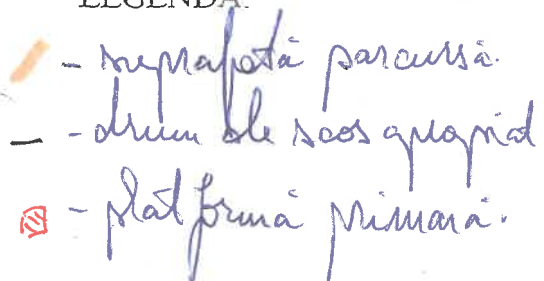 LEGENDA
- suprafață parcursă.
- drum de scos apropiat
- platformă primară.